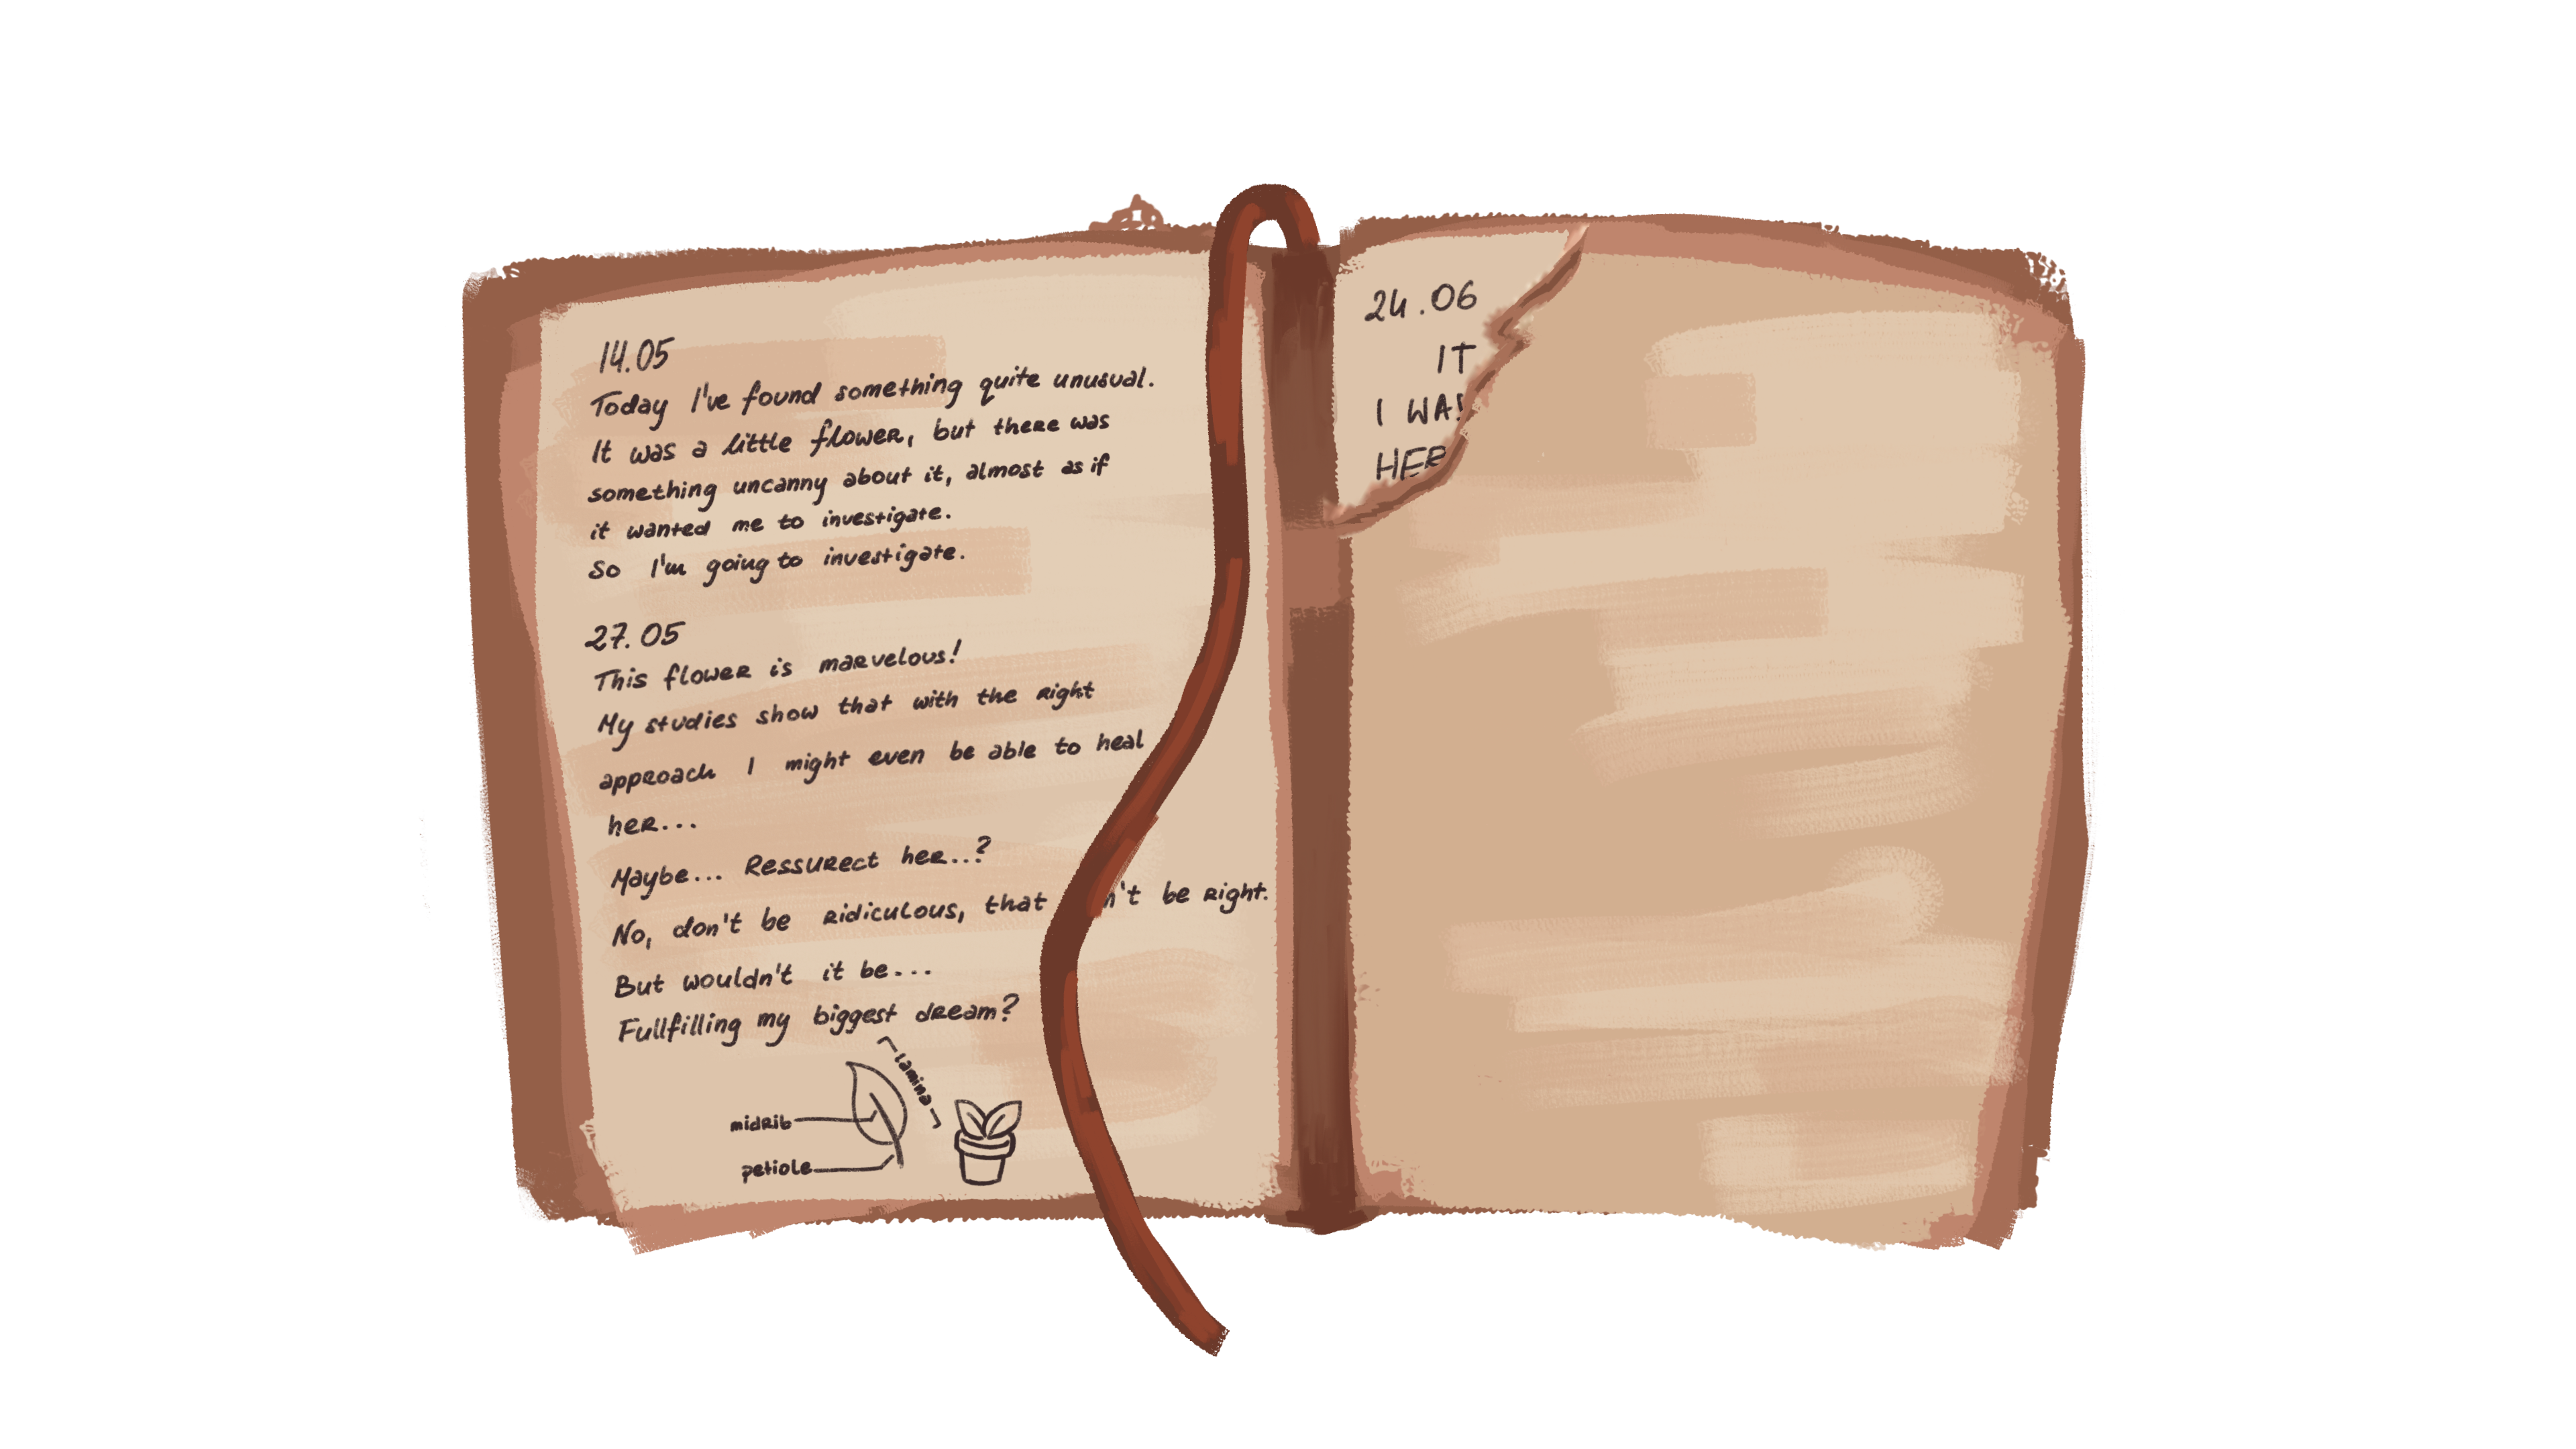 14.05
Today I've found something quite unusual.
It was a little flower, but there was
something uncanny about it, almost as if
it wanted me to investigate.
So I'm going to investigate.
27.05
This flower is marvelous!
My studies show that with the right
approach I might even be able to heal
her...
Maybe... Ressurect her..?
No, don't be ridiculous, that be right.
But wouldn't it be...
Fullfilling my biggest dream?
lamina
midrib
petiole
24.06
IT
I